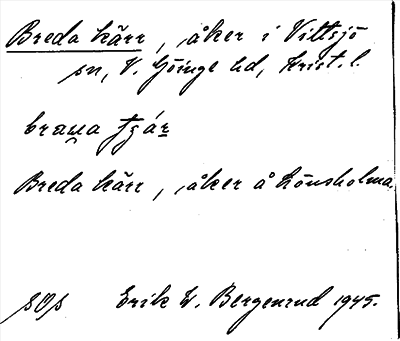 Breda kärr, åker i Vittsjö
sn, V. Göinge hd, Krist. l.
brawa tjár
Breda kärr, åker å Lönsholma.
sOs Erik W. Bergenrud 1945.